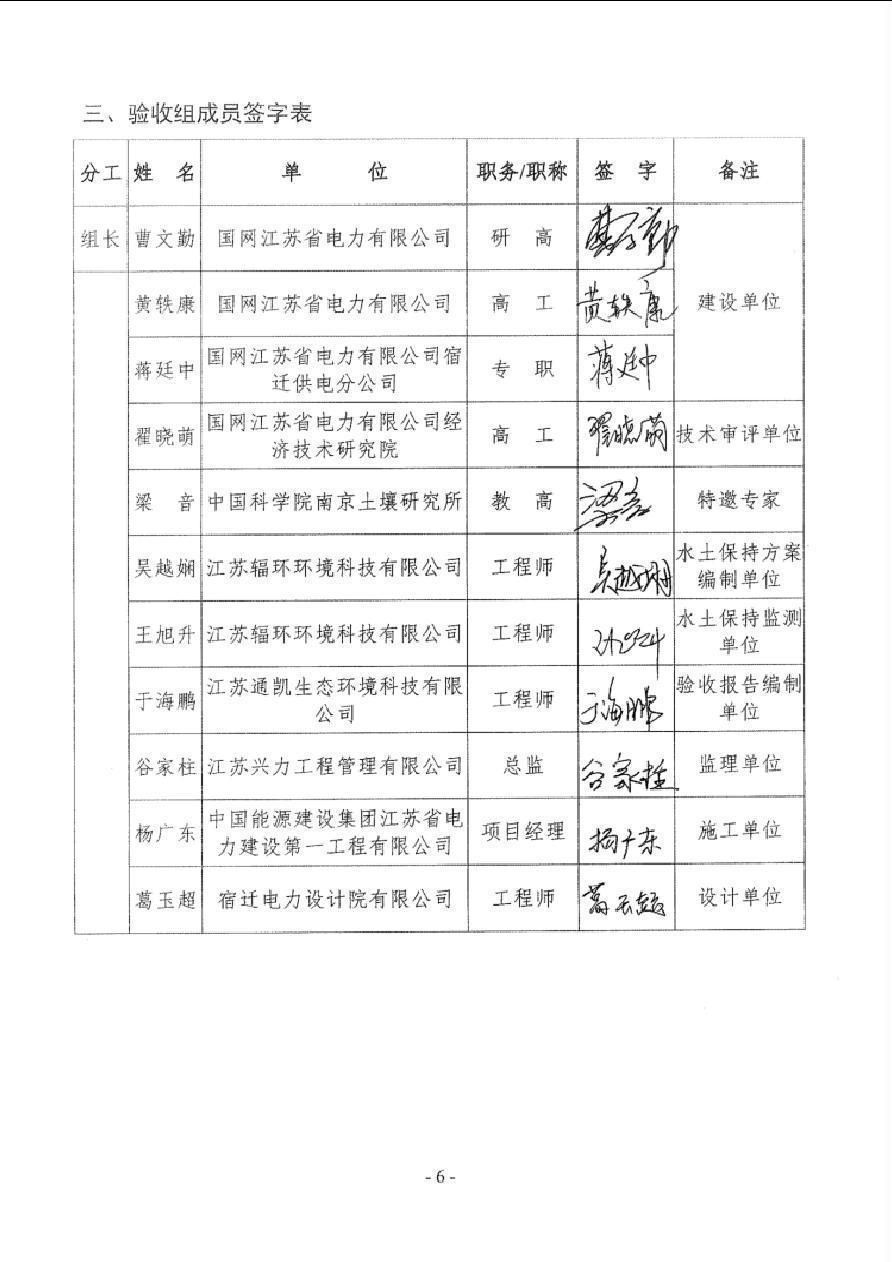 三、验收组成员签字表
分工 姓 名 单 位 职务/职称 签 字 备注
组长 曹文勤 国网江苏省电力有限公司 研 高
黄轶康 国网江苏省电力有限公司 高 工 黄轶康 建设单位
蒋廷中 国网江苏省电力有限公司宿
迁供电分公司 专 职 蒋廷中
翟晓萌 国网江苏省电力有限公司经
济技术研究院 高 工 翟晓萌 技术审评单位
梁 音 中国科学院南京土壤研究所 教 高 梁音 特邀专家
吴越娴 江苏辐环环境科技有限公司 工程师 吴越娴 水土保持方案
编制单位
王旭升 江苏辐环环境科技有限公司 工程师 水土保持监测
单位
于海鹏 江苏通凯生态环境科技有限
公司 工程师 于海鹏 验收报告编制
单位
谷家柱 江苏兴力工程管理有限公司 总监 谷家柱 监理单位
杨广东 中国能源建设集团江苏省电
力建设第一工程有限公司 项目经理 杨广东 施工单位
葛玉超 宿迁电力设计院有限公司 工程师 葛玉超 设计单位
- 6 -